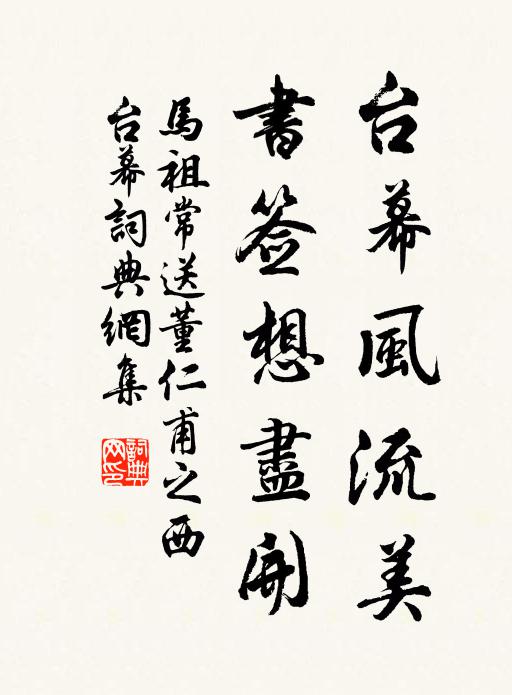 台幕風流美
書签想盡開
馬祖常送董仁甫之西
台幕詞典網集
詞典网印